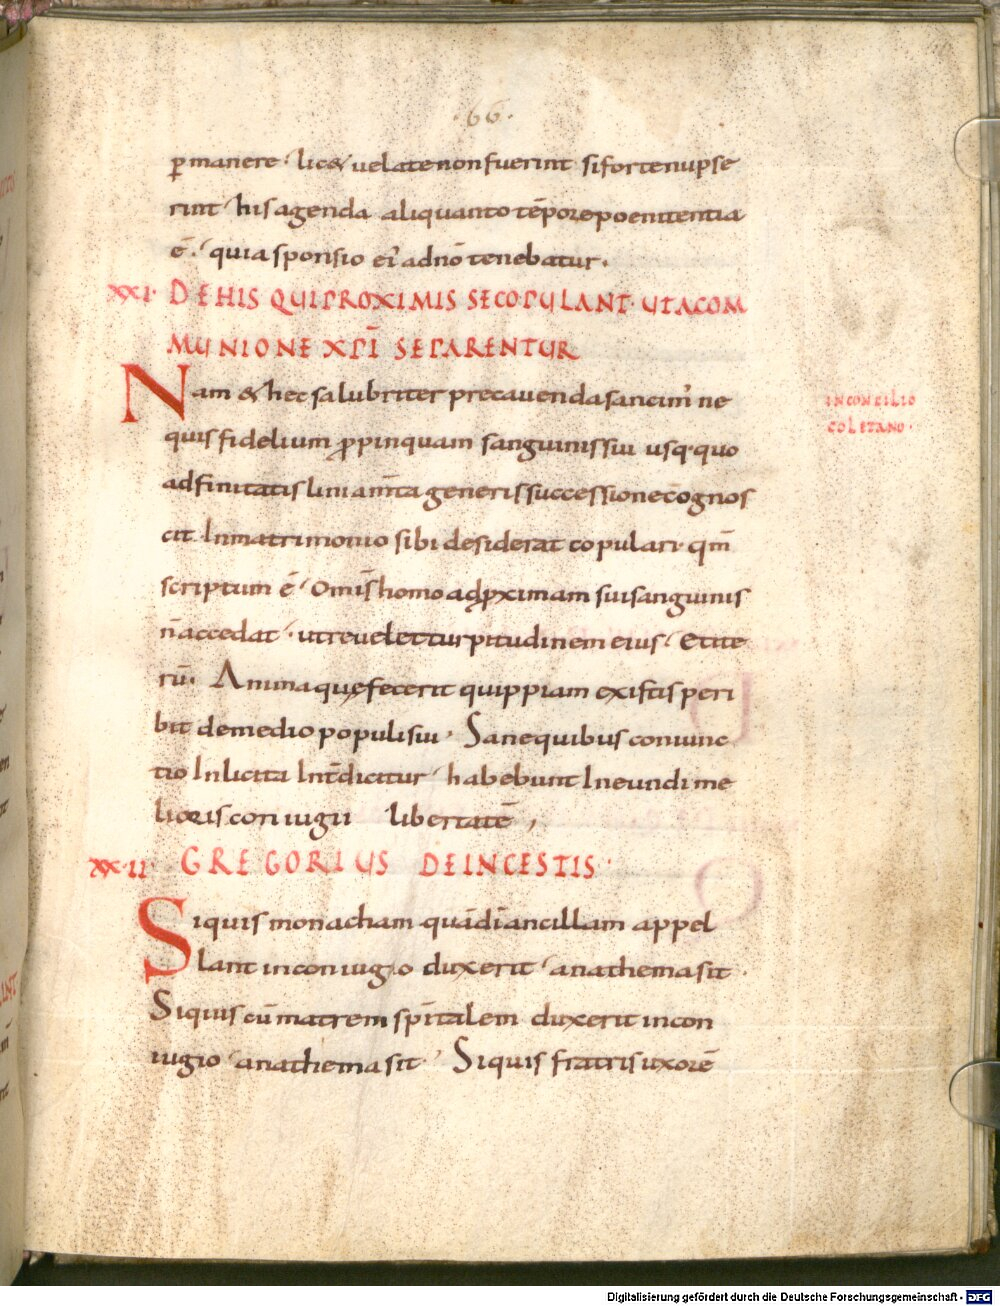 ·66·
p̱manere · lic& uelate non fuerint si forte nupse
rint · his agenda aliquanto tēpore poenitentia
ē · quia sponsio eī ad nō tenebatur ·
XXI· DE HIS QUI PROXIMIS SE COPULANT· UT A COM
MUNIONE XPI SEPARENTUR
IN CONCILIO
COLETANO·
Nam & hec salubriter precauenda sancim' ne
quis fidelium ꝓpinquam sanguinis sui usq· quo
adfinitatis liniamta generis successione cognos
cit In matrimonio sibi desiderat copulari· qm̄
scriptum ē · Omīs homo ad ꝓximam sui sanguinis
n̄ accedat · ut reuelet turpitudinem eius · Et ite
rū· Anima quę fecerit quippiam ex istis peri
bit de medio populi sui · Sane quibus coniunc
tio Inlicita Int̄dicitur · habebunt Ineundi me
lioris coniugii libertatē ,
XX·II· GREGORIUS DE INCESTIS ·
Siquis monacham quā dī ancillam appel
lant in coniugio duxerit · anathema sit ·
Siquis cū matrem spītalem duxerit in con
iugio · anathema sit · Siquis fratris uxorē
Digitalisierung gefördert durch die Deutsche Forschungsgemeinschaft - DFG